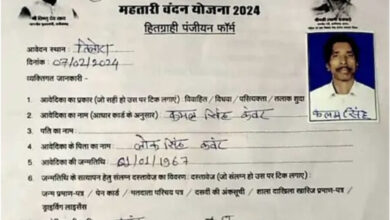 महतारी वंदन योजना 2024
हितग्राही पंजीयन फॉर्म
आवेदन स्थान :
दिनांक : 07/02/2024
व्यक्तिगत जानकारी -
1. आवेदिका का प्रकार (जो सही हो उस पर टिक लगाएं) विवाहित / विधवा / परित्यक्ता / तलाक शुदा
2. आवेदिका का नाम (आधार कार्ड के अनुसार) कमल सिंह कंवर
3. पति का नाम
4. आवेदिका के पिता का नाम लोक सिंह कंवर
5. आवेदिका की जन्मतिथि 01/01/1967
6. जन्मतिथि के सत्यापन हेतु संलग्न दस्तावेज का विवरण: दस्तावेज (जो संलग्न हो उस पर टिक लगाएं)
जन्म प्रमाण-पत्र / पेन कार्ड / मतदाता परिचय पत्र / दसवी की अंकसूची / शाला दाखिला खारिज प्रमाण-पत्र /
ड्राइविंग लाइसेंस
सिंह